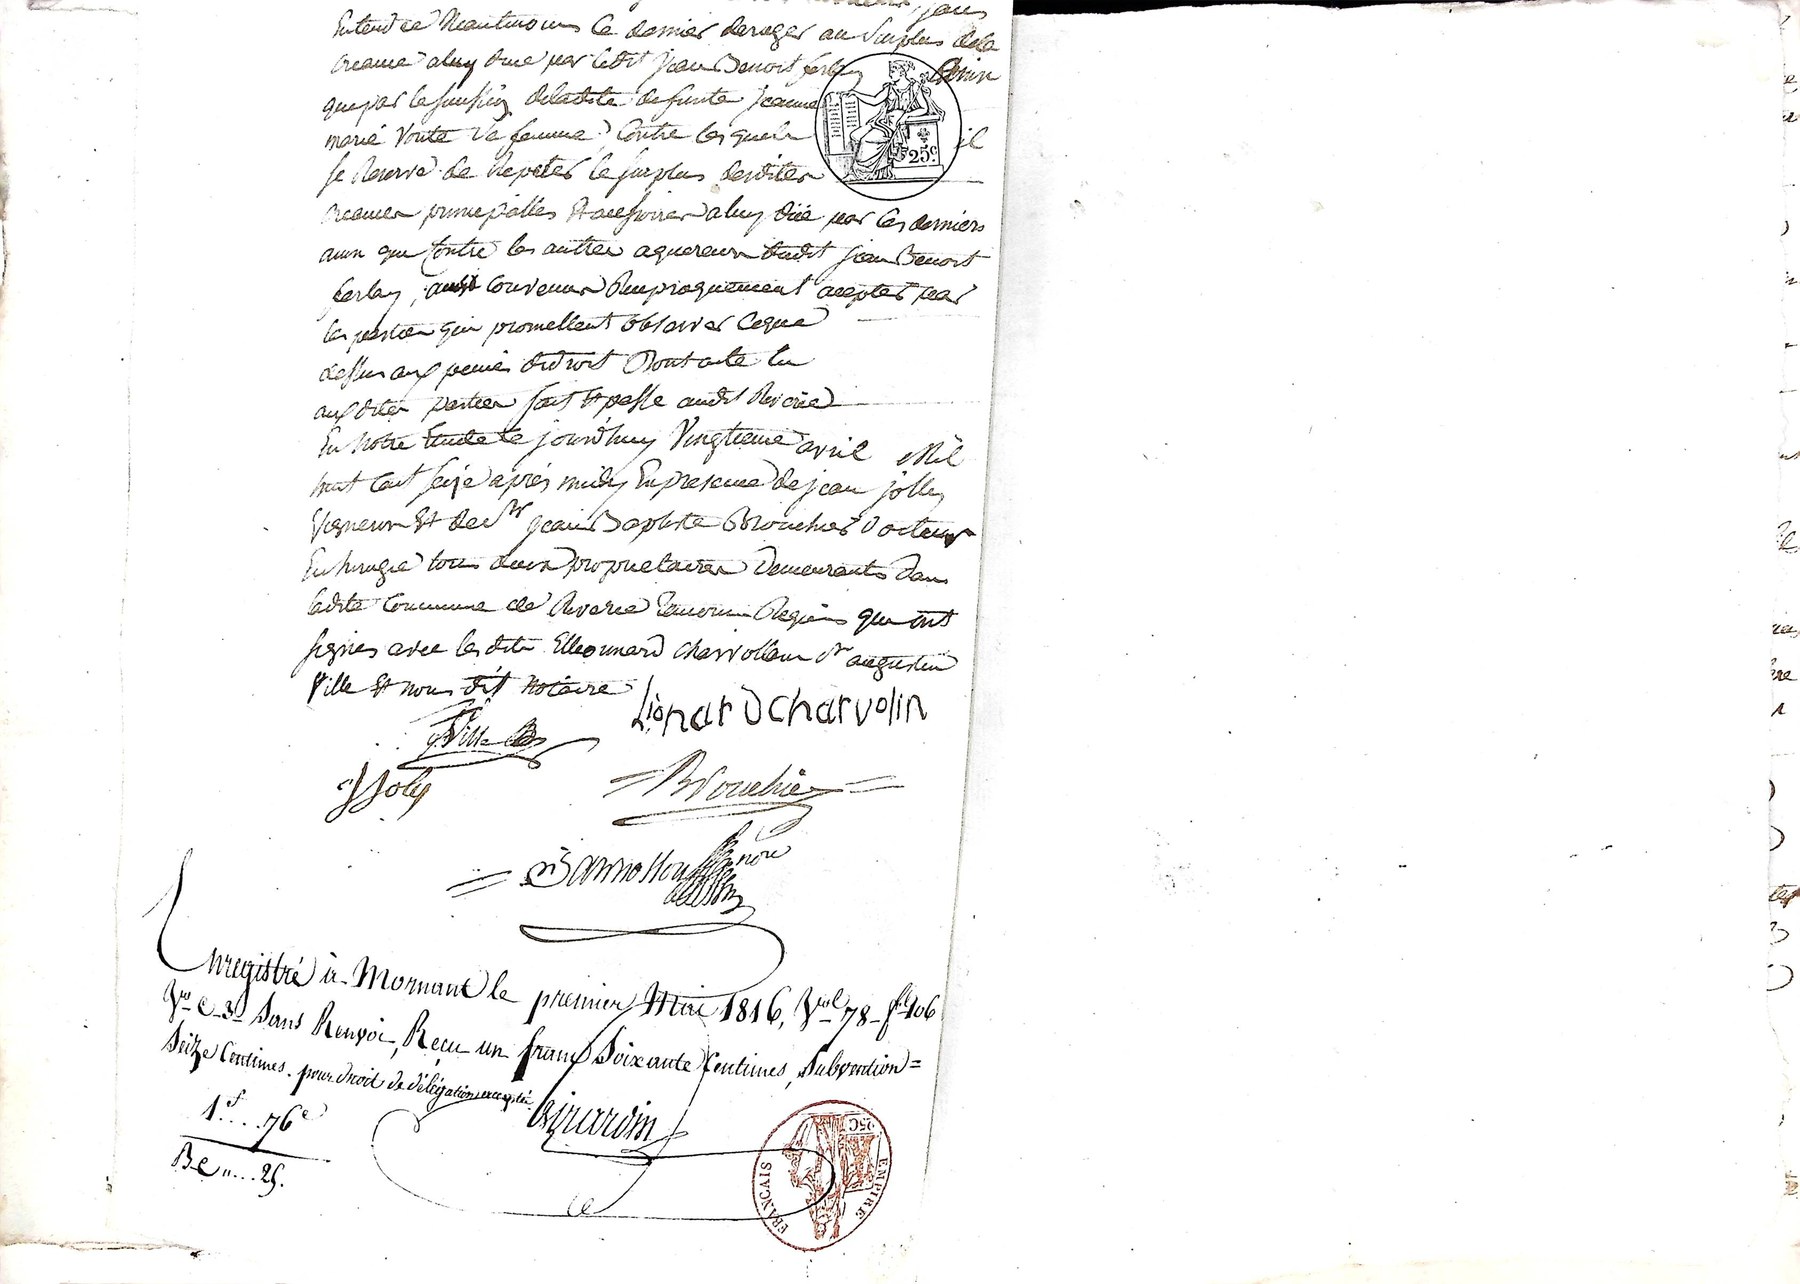 Entendre Neantmoins Ce dernier deroger au Surplus dela
Creance aluy due par ledit jean Benoit ferlay
que par la succession deladite defunte jeanne
marie Voute Sa femme, Contre lesquels il
se Reserve de Repeter le surplus desdites
Creances principalles Et accessoires aluy düe par Ces derniers
ainsi que Contre les autres aquereurs dudit jean Benoit
ferlay, ainsi Convenu Reciproquement accepté par
les parties qui promettent observer Ceque
dessus aux peines dedroit Dont acte lu
aux dites parties fait Et passé audit Riverie
En Notre Etude le jourd'huy Vingtieme avril Mil
huit Cent Seize après midy En presence de jean jolly
Vigneron Et de Sr jean Baptiste Brouchier Docteur
En chirurgie tous deux proprietaires Demeurants dans
ladite Commune de Riverie temoins Requis qui ont
signés avec lesdits Elleonnard Charvollin Sr augustin
Ville Et nous dit Notaire
Ville
Lionard charvolin
J Joly
Brouchier
Enregistré à Mornant le premier Mai 1816, Vol 78 fo 106
Vo C 3 Sans Renvoi, Reçu un franc Soixante Centimes, Subvention=
Seize Centimes. pour droit de délégation acceptée
Girardin
1f....76c
Be....25.
25c
EMPIRE FRANCAIS
25C